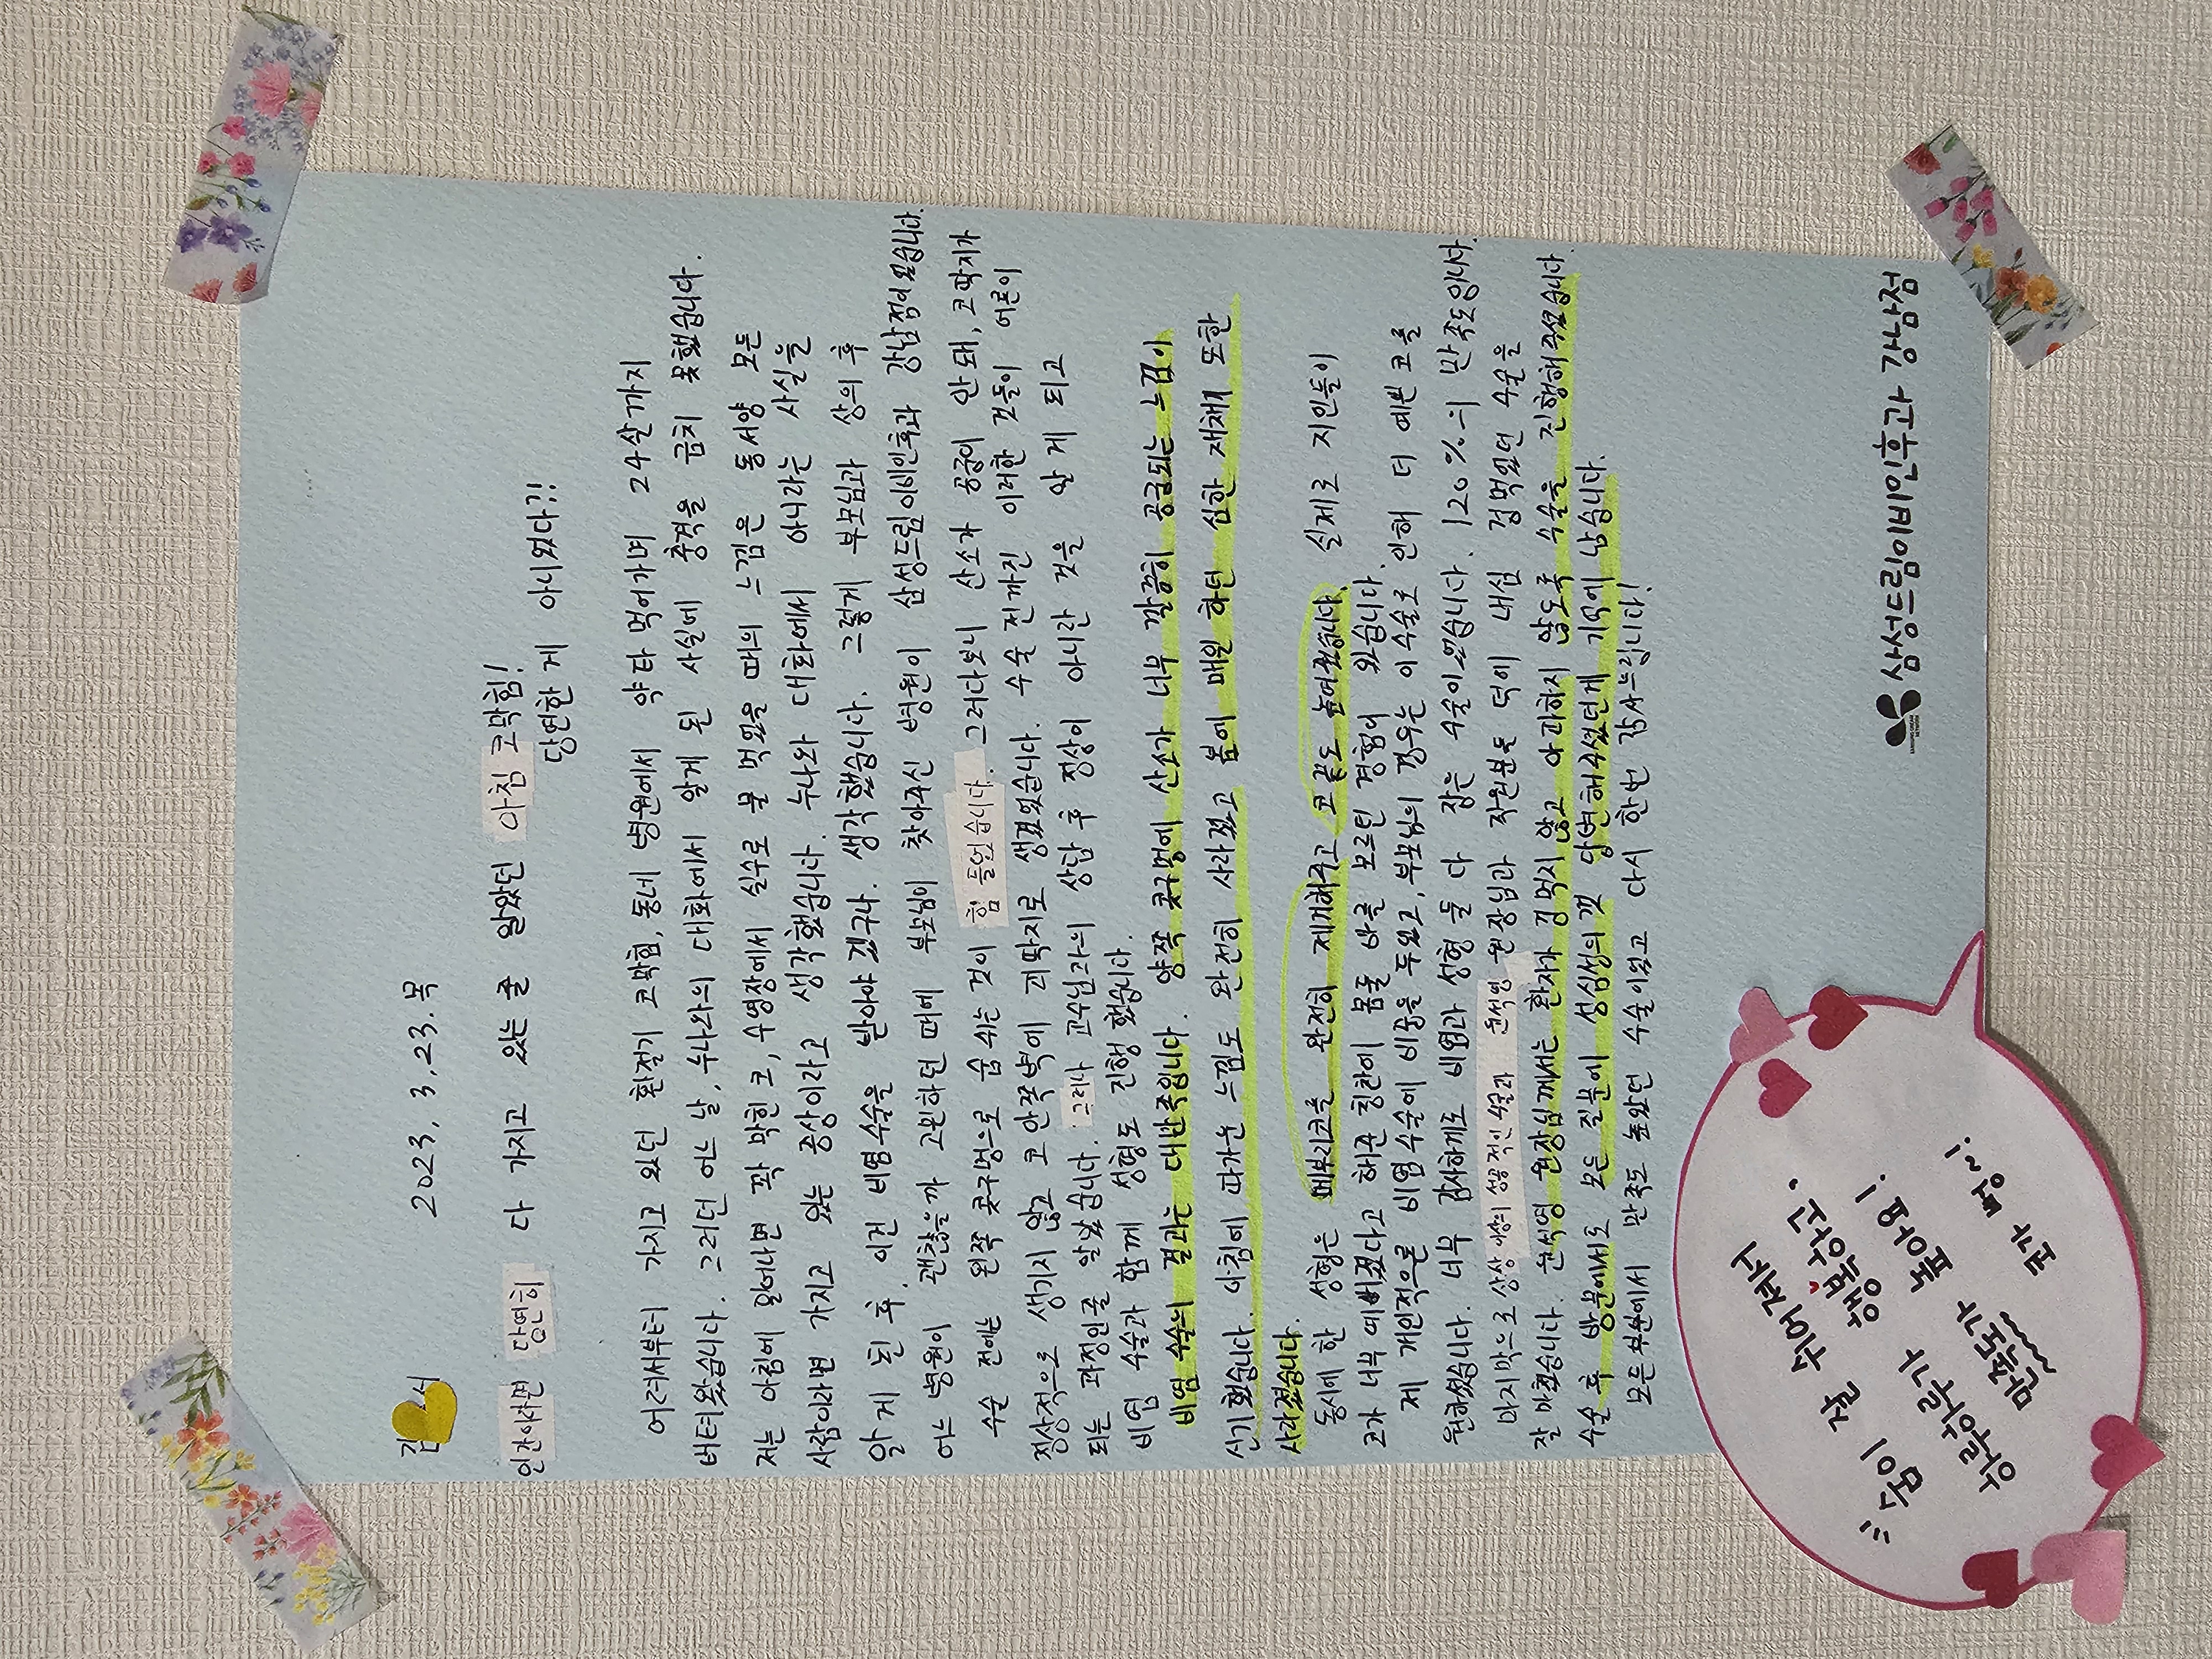 김 서
2023, 3, 23. 목
인간이라면 당연히 다 가지고 있는 줄 알았던 아침 코막힘!
당연한 게 아니었다?!
어려서부터 가지고 있던 환절기 코막힘, 동네 병원에서 약타 먹어가며 24살까지
버텨왔습니다. 그러던 어느 날, 누나와의 대화에서 알게 된 사실에 충격을 금치 못했습니다.
저는 아침에 일어나면 꽉 막힌 코, 수영장에서 실수로 물 먹었을 때의 느낌은 동서양 모든
사람이라면 가지고 있는 증상이라고 생각했습니다. 누나와 대화에서 아니라는 사실을
알게 된 후, 이건 비염수술을 받아야겠구나. 생각했습니다. 그렇게 부모님과 상의 후
어느 병원이 괜찮을까 고민하던 때에 부모님이 찾아주신 병원이 삼성드림이비인후과 강남점이었습니다.
수술 전에는 왼쪽 콧구멍으로 숨 쉬는 것이 힘들었습니다. 그러다보니 산소가 공급이 안 돼, 코딱지가
정상적으로 생기지 않고 코 안쪽벽에 피딱지로 생겼었습니다. 수술 전까진 이러한 것들이 어른이
되는 과정인줄 알았습니다. 그러나 교수님과의 상담 후 정상이 아니란 것을 알게 되고
비염 수술과 함께 성형도 진행 했습니다.
비염 수술의 결과는 대만족입니다. 양쪽 콧구멍에 산소가 너무 깔끔히 공급되는 느낌이
신기했습니다. 아침에 따가운 느낌도 완전히 사라졌고 봄에 매일 하던 심한 재채기 또한
사라졌습니다.
동시에 한 성형은 매부리코를 완전히 제거해주고 코 끝도 높여졌습니다. 실제로 지인들이
코가 너무 예뻐졌다고 해준 칭찬에 몸둘 바를 모르던 경험이 있습니다.
제 개인적으론 비염 수술에 비중을 두었고, 부모님의 경우는 이 수술로 인해 더 예쁜 코를
원하셨습니다. 너무 감사하게도 비염과 성형 둘 다 잡는 수술이었습니다. 120%의 만족도입니다.
마지막으로 상상 이상의 성공적인 사람과 윤석영 원장님과 직원분들 덕에 내심 겁먹었던 수술을
잘 마쳤습니다. 윤석영 원장님께서는 환자가 겁먹지 않고 아파하지 않도록 수술을 진행해주셨습니다.
수술 후 방문에서도 모든 질문에 성심성의껏 답변해주셨던게 기억에 남습니다.
모든 부분에서 만족도 높았던 수술이었고 다시 한번 감사드립니다!
삼성드림이비인후과 강남점
SAMSUNG DREAM NETWORK
"숨이 잘 쉬어져서
행복하고,
하루하루가
만족도가 높아요!
코가 뻥~!